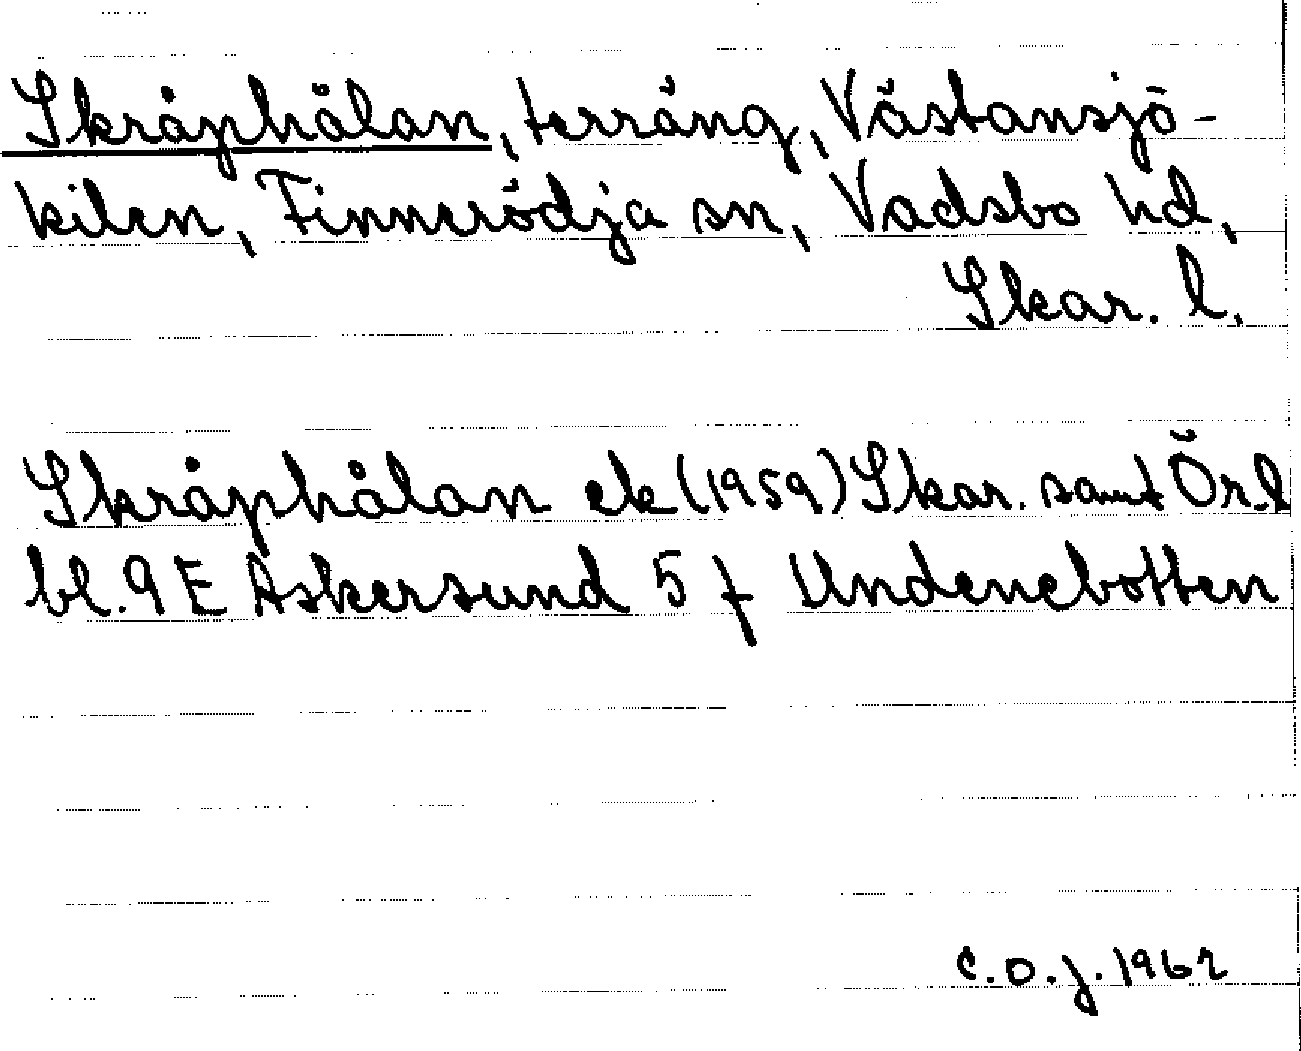 Skråphålan, terräng, Västansjö-
kilen, Finnerödja sn, Vadsbo hd,
Skar. l.
Skråphålan ek (1959) Skar. samt Ör.l
bl. 9 E Askersund 5 f Undenebotten
C.O.J. 1962